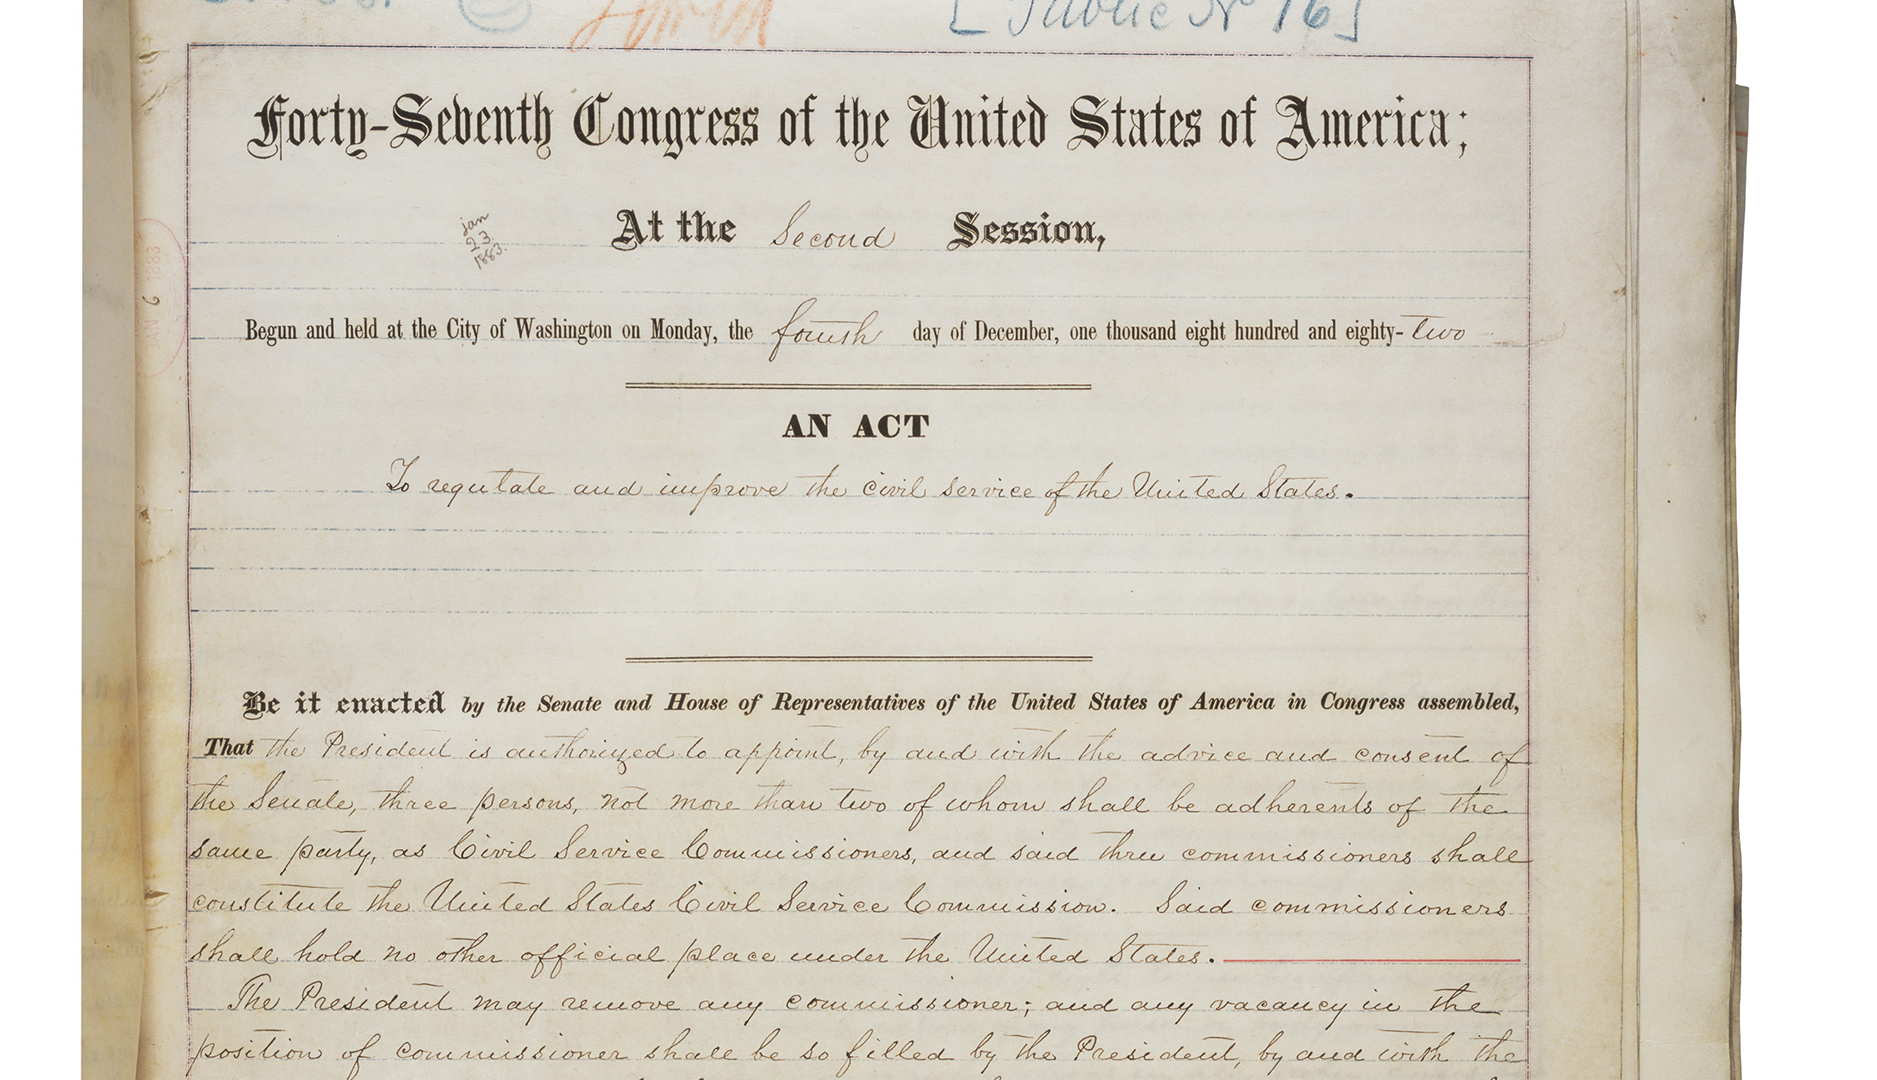 [Public No 16]
Forty-Seventh Congress of the United States of America;
Jan
23
1883.
At the Second Session,
6 1883
Begun and held at the City of Washington on Monday, the fourth day of December, one thousand eight hundred and eighty-two
AN ACT
To regulate and improve the civil service of the United States.
Be it enacted by the Senate and House of Representatives of the United States of America in Congress assembled,
That the President is authorized to appoint, by and with the advice and consent of
the Senate, three persons, not more than two of whom shall be adherents of the
same party, as Civil Service Commissioners, and said three commissioners shall
constitute the United States Civil Service Commission. Said commissioners
shall hold no other official place under the United States.
The President may remove any commissioner; and any vacancy in the
position of commissioner shall be so filled by the President, by and with the